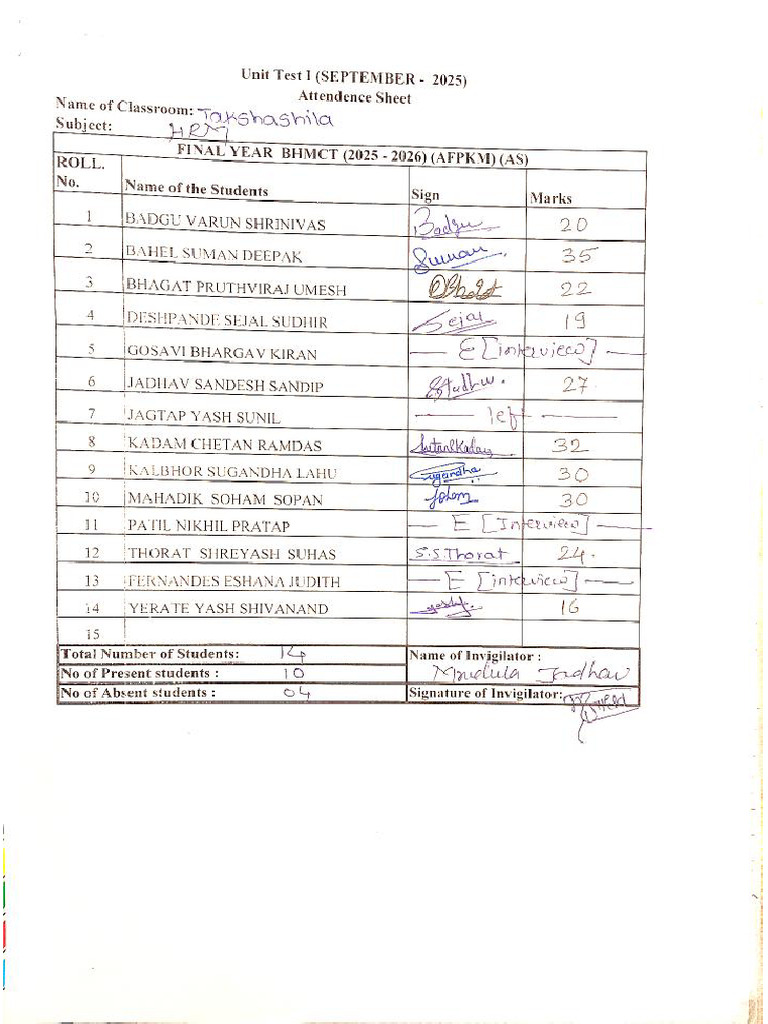 Unit Test I (SEPTEMBER - 2025)
Attendence Sheet
Name of Classroom: Takshashila
Subject: HRM
FINAL YEAR BHMCT (2025 - 2026) (AFPKM) (AS)
ROLL. No. Name of the Students Sign Marks
1 BADGU VARUN SHRINIVAS Badgu 20
2 BAHEL SUMAN DEEPAK Suman 35
3 BHAGAT PRUTHVIRAJ UMESH 22
4 DESHPANDE SEJAL SUDHIR Sejal 19
5 GOSAVI BHARGAV KIRAN — E [interview] —
6 JADHAV SANDESH SANDIP 27
7 JAGTAP YASH SUNIL — left —
8 KADAM CHETAN RAMDAS 32
9 KALBHOR SUGANDHA LAHU Sugandha 30
10 MAHADIK SOHAM SOPAN 30
11 PATIL NIKHIL PRATAP — E [Interview] —
12 THORAT SHREYASH SUHAS S.S.Thorat 24.
13 FERNANDES ESHANA JUDITH — E [interview] —
14 YERATE YASH SHIVANAND 16
15
Total Number of Students: 14 Name of Invigilator :
No of Present students : 10 Mrudula Jadhav
No of Absent students : 04 Signature of Invigilator: